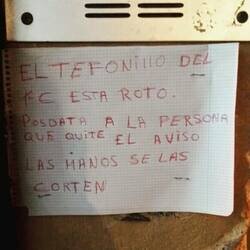 EL TEFONILLO DEL
FC ESTA ROTO.
POSDATA A LA PERSONA
QUE QUITE EL AVISO
LAS MANOS SE LAS
CORTEN